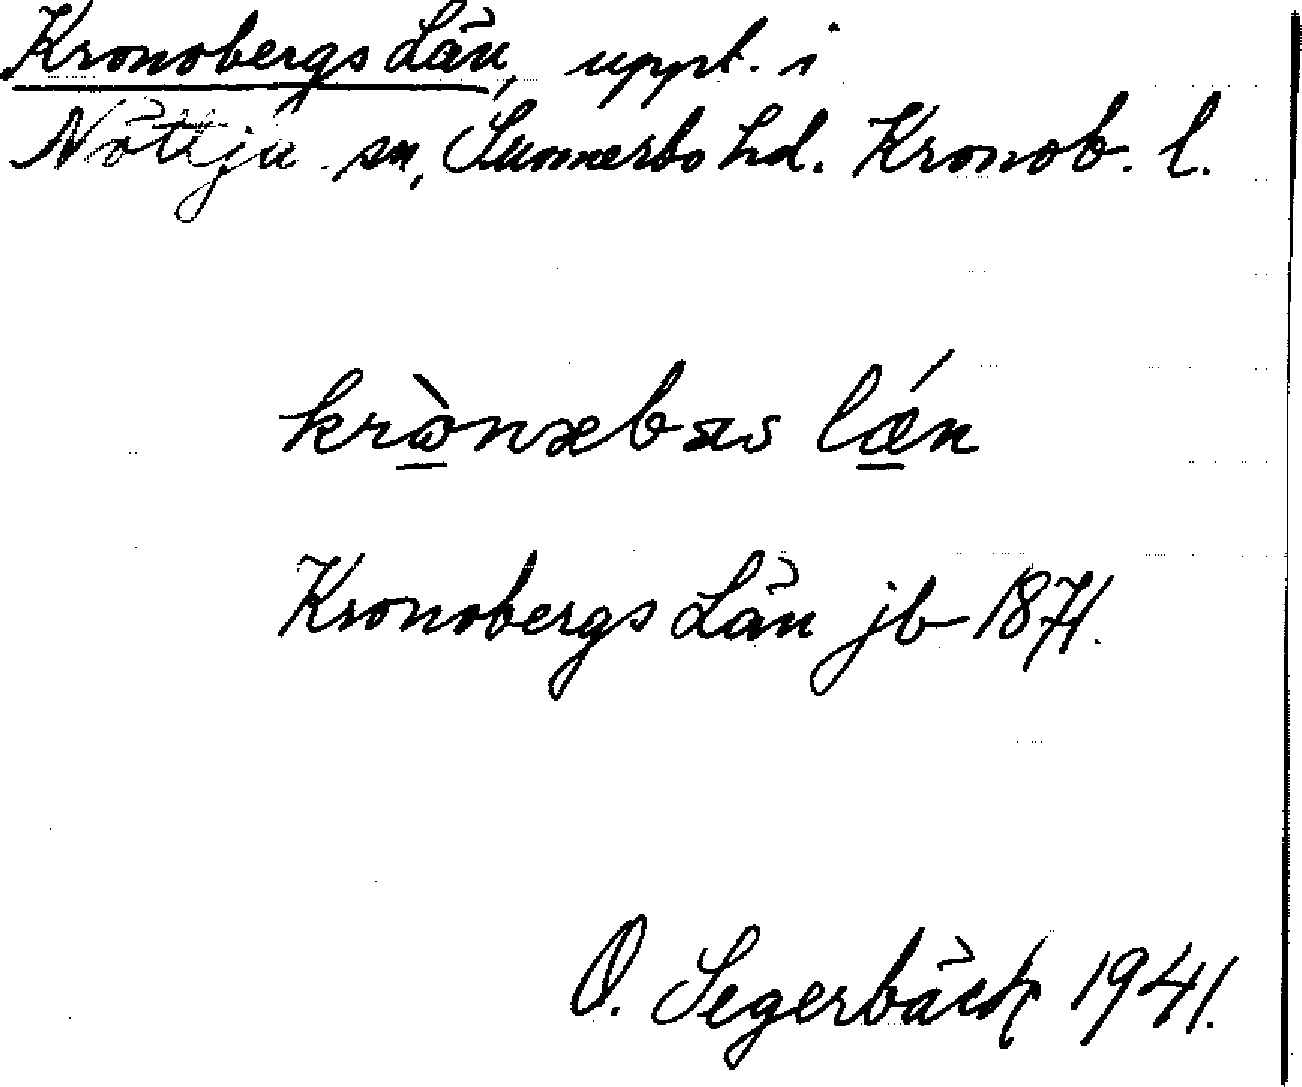 Kronobergs Län, uppt. i
Nöttja sn, Sunnerbo hd. Kronob. l.
krὼnæbæs lǽn
Kronobergs Län jb 1871.
O. Segerbäck 1941.